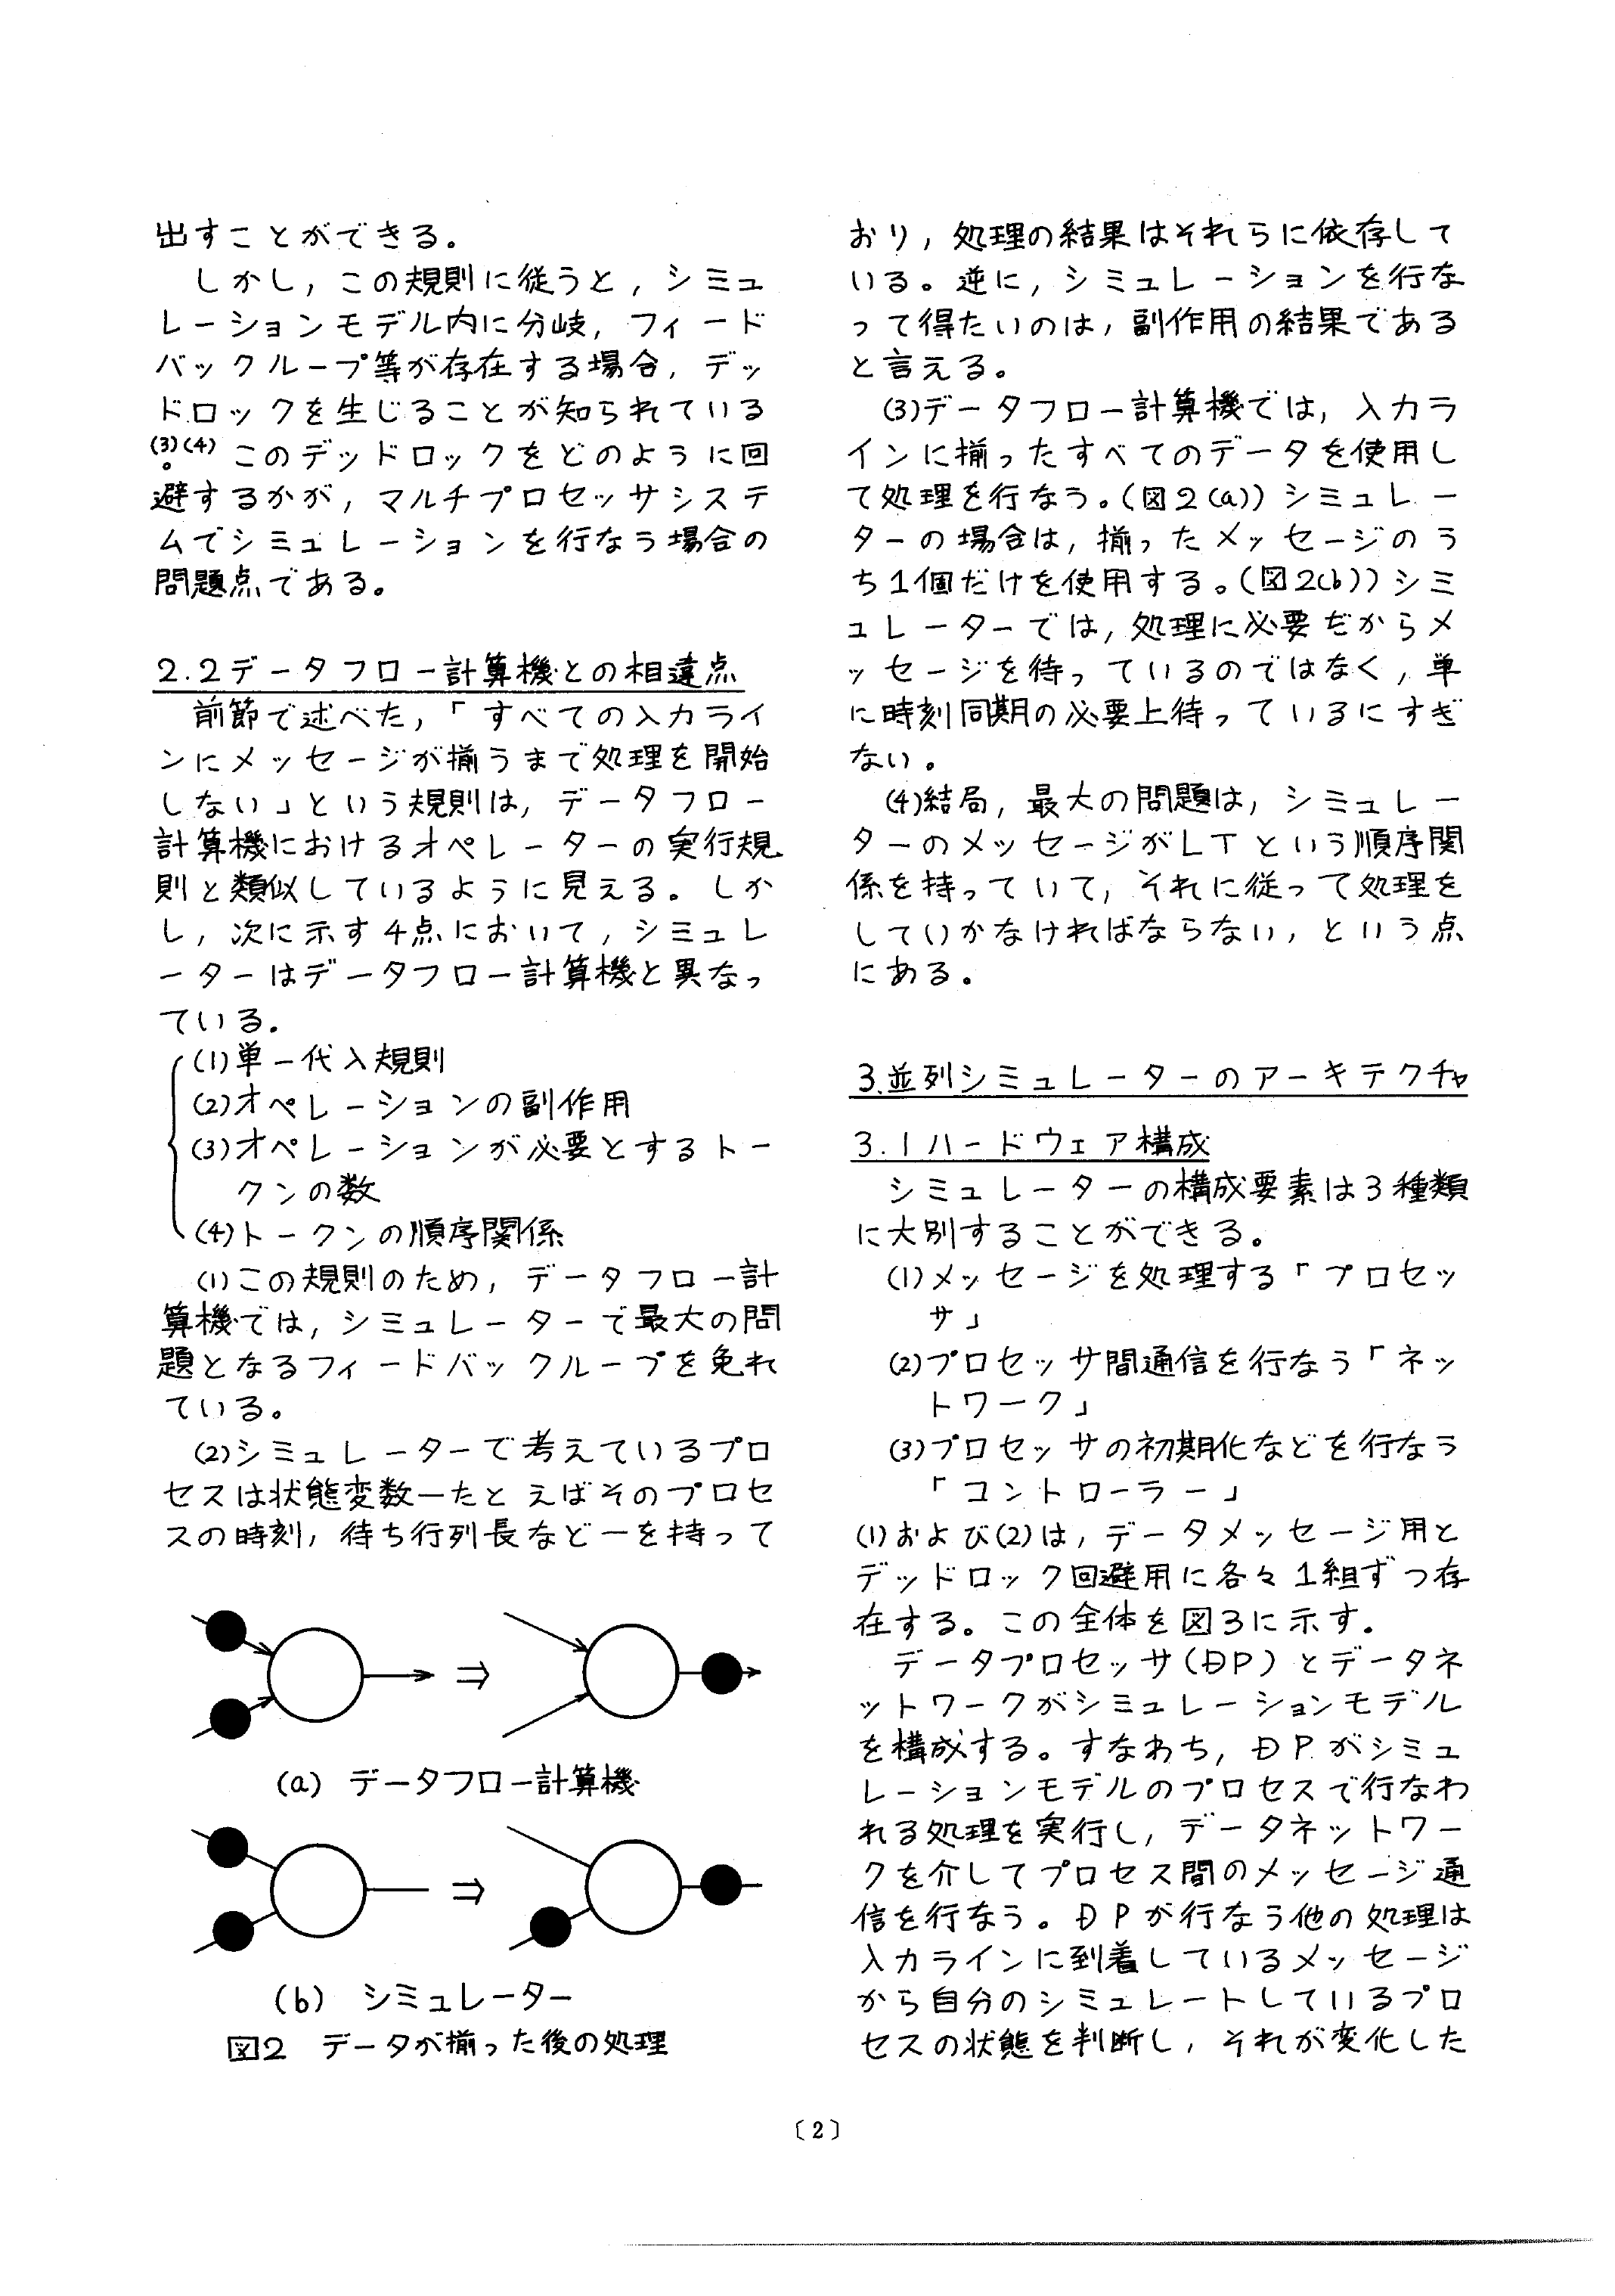 出すことができる。
しかし，この規則に従うと，シミュ
レーションモデル内に分岐，フィード
バックループ等が存在する場合，デッ
ドロックを生じることが知られている
(3)(4)。このデッドロックをどのように回
避するかが，マルチプロセッサシステ
ムでシミュレーションを行なう場合の
問題点である。
2.2データフロー計算機との相違点
前節で述べた，「すべての入力ライ
ンにメッセージが揃うまで処理を開始
しない」という規則は，データフロー
計算機におけるオペレーターの実行規
則と類似しているように見える。しか
し，次に示す4点において，シミュレ
ーターはデータフロー計算機と異なっ
ている．
(1)単一代入規則
(2)オペレーションの副作用
(3)オペレーションが必要とするトー
クンの数
(4)トークンの順序関係
(1)この規則のため，データフロー計
算機では，シミュレーターで最大の問
題となるフィードバックループを免れ
ている。
(2)シミュレーターで考えているプロ
セスは状態変数ーたとえばそのプロセ
スの時刻，待ち行列長などーを持って
(a) データフロー計算機
(b) シミュレーター
図2 データが揃った後の処理
おり，処理の結果はそれらに依存して
いる。逆に，シミュレーションを行な
って得たいのは，副作用の結果である
と言える。
(3)データフロー計算機では，入力ラ
インに揃ったすべてのデータを使用し
て処理を行なう。(図2(a)) シミュレー
ターの場合は，揃ったメッセージのう
ち1個だけを使用する。(図2(b)) シミ
ュレーターでは，処理に必要だからメ
ッセージを待っているのではなく，単
に時刻同期の必要上待っているにすぎ
ない。
(4)結局，最大の問題は，シミュレー
ターのメッセージがLTという順序関
係を持っていて，それに従って処理を
していかなければならない，という点
にある。
3.並列シミュレーターのアーキテクチャ
3.1ハードウェア構成
シミュレーターの構成要素は3種類
に大別することができる。
(1)メッセージを処理する「プロセッ
サ」
(2)プロセッサ間通信を行なう「ネッ
トワーク」
(3)プロセッサの初期化などを行なう
「コントローラー」
(1)および(2)は，データメッセージ用と
デッドロック回避用に各々1組ずつ存
在する。この全体を図3に示す．
データプロセッサ(DP)とデータネ
ットワークがシミュレーションモデル
を構成する。すなわち，DPがシミュ
レーションモデルのプロセスで行なわ
れる処理を実行し，データネットワー
クを介してプロセス間のメッセージ通
信を行なう。DPが行なう他の処理は
入力ラインに到着しているメッセージ
から自分のシミュレートしているプロ
セスの状態を判断し，それが変化した
〔2〕